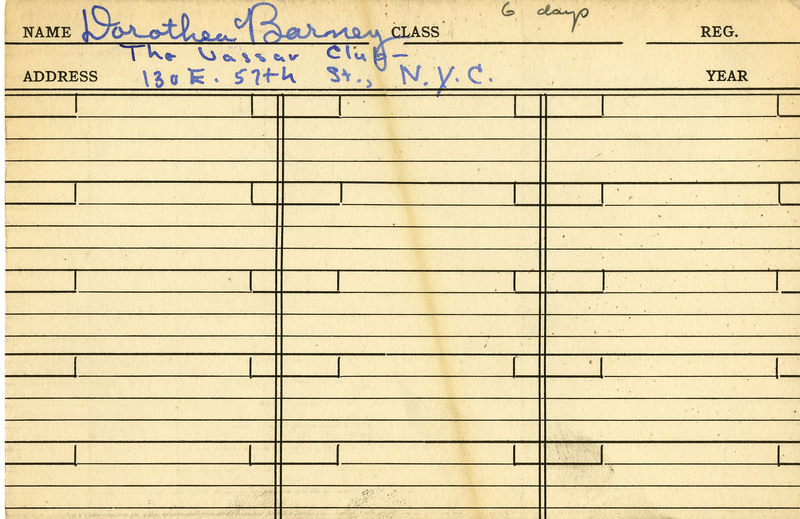 6 days
NAME Dorothea Barney CLASS REG.
The Vassar Club-
ADDRESS 130 E. 57th St., N.Y.C. YEAR